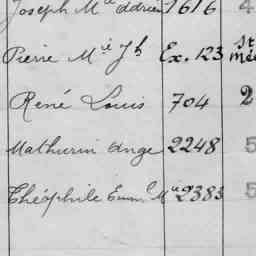 Joseph M.ie Adrien 1616 4
Pierre M.ie Jh Ex. 123 St Mée
René Louis 704 2
Mathurin Ange 2248 5
Théophile Emm.l M.a 2383 5